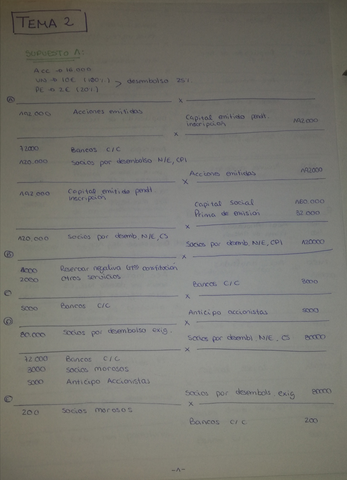 TEMA 2
SUPUESTO A:
Acc → 16.000
VN → 10€
PE → 2€ (20%) > desembolso 25%
Ⓐ x
192.000 Acciones emitidas
Capital emitido pendt
inscripción 192.000
x
72000 Bancos C/C
120.000 Socios por desembolso N/E, CPI
Acciones emitidas 192000
x
192.000 Capital emitido pendt
inscripción
Capital social 160.000
Prima de emisión 32.000
x
120.000 Socios por desemb N/E, CS
Socios por desemb N/E, CPI 120000
Ⓑ x
Reservas negativa GTO constitución
2000 otros servicios
Bancos C/C 8000
Ⓒ x
5000 Bancos C/C
Anticipo accionistas 5000
Ⓓ x
80.000 Socios por desembolso exig.
Socios por desemb. N/E, CS 80000
x
72.000 Bancos C/C
3000 Socios morosos
5000 Anticipo Accionistas
Socios por desembols exig 80000
x
200 Socios morosos
Bancos c/c 200
-1-